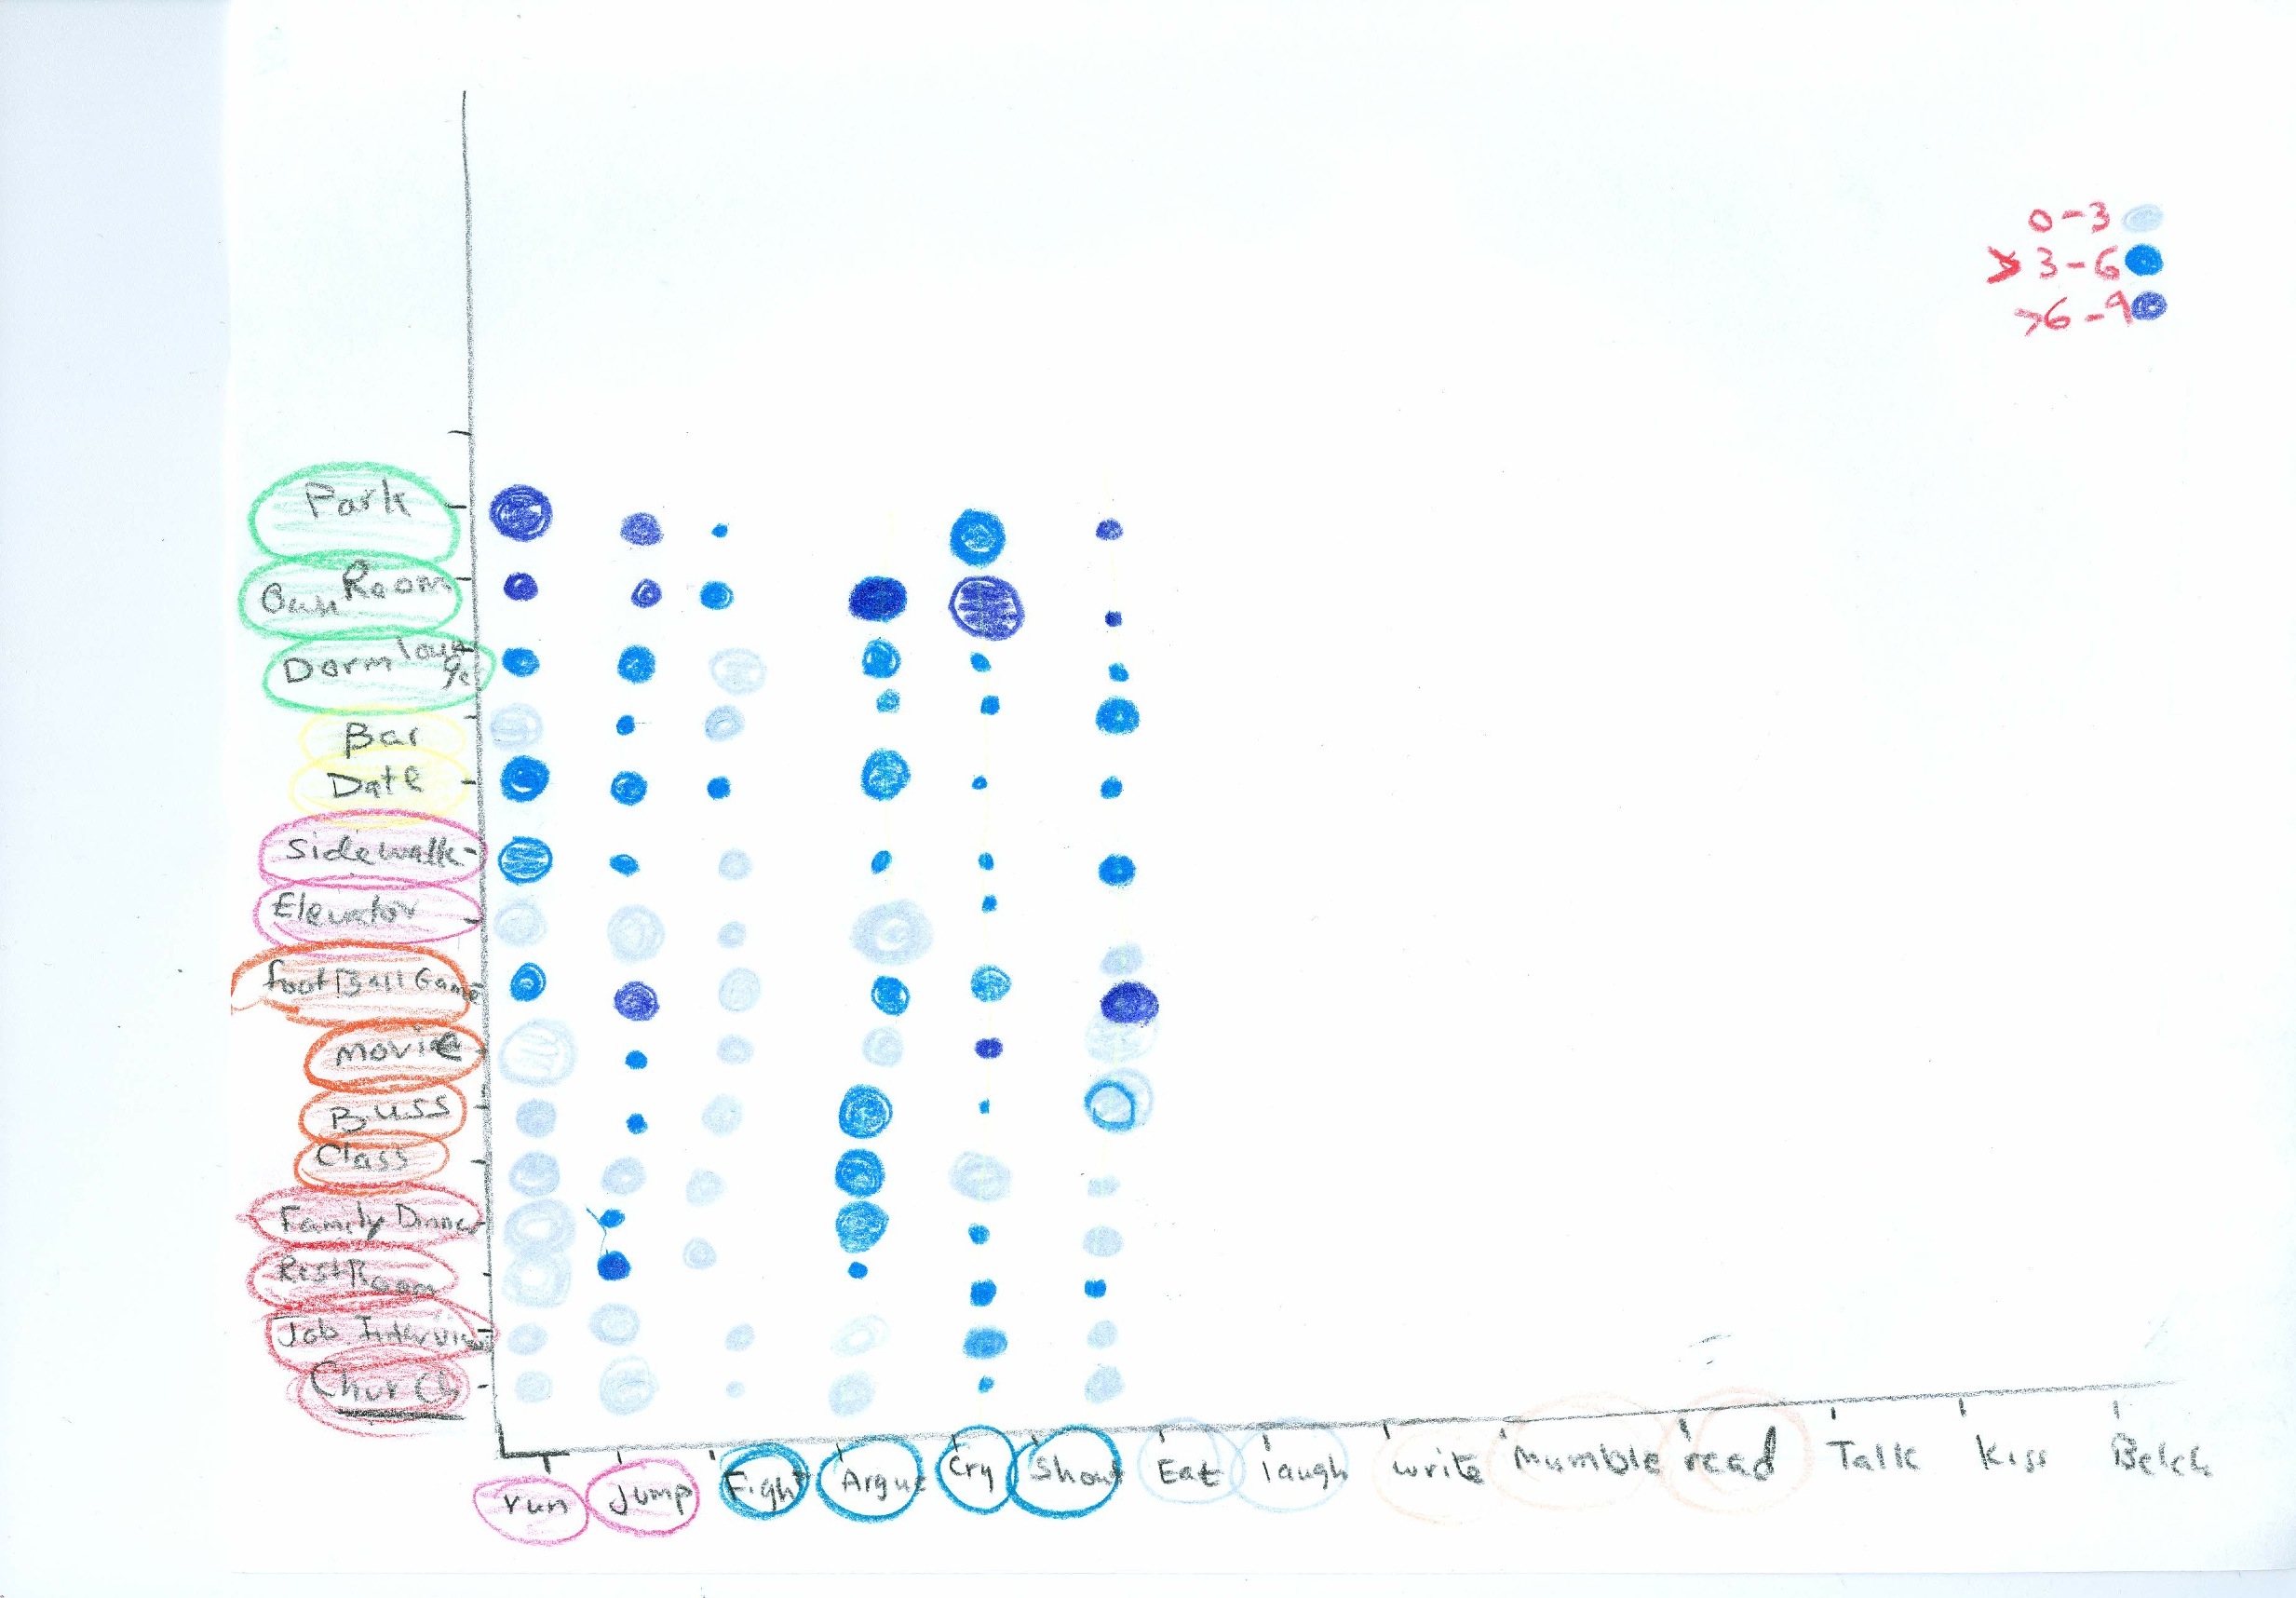 0-3
>3-6
>6-9
Park
Room
Dorm
Bar
Date
Sidewalk
Elevator
footBall Game
movie
Buss
Class
Family Dinner
RestRoom
Job Interview
Church
run jump Fight Argue Cry Shout Eat laugh write Mumble read Talk Kiss Belch